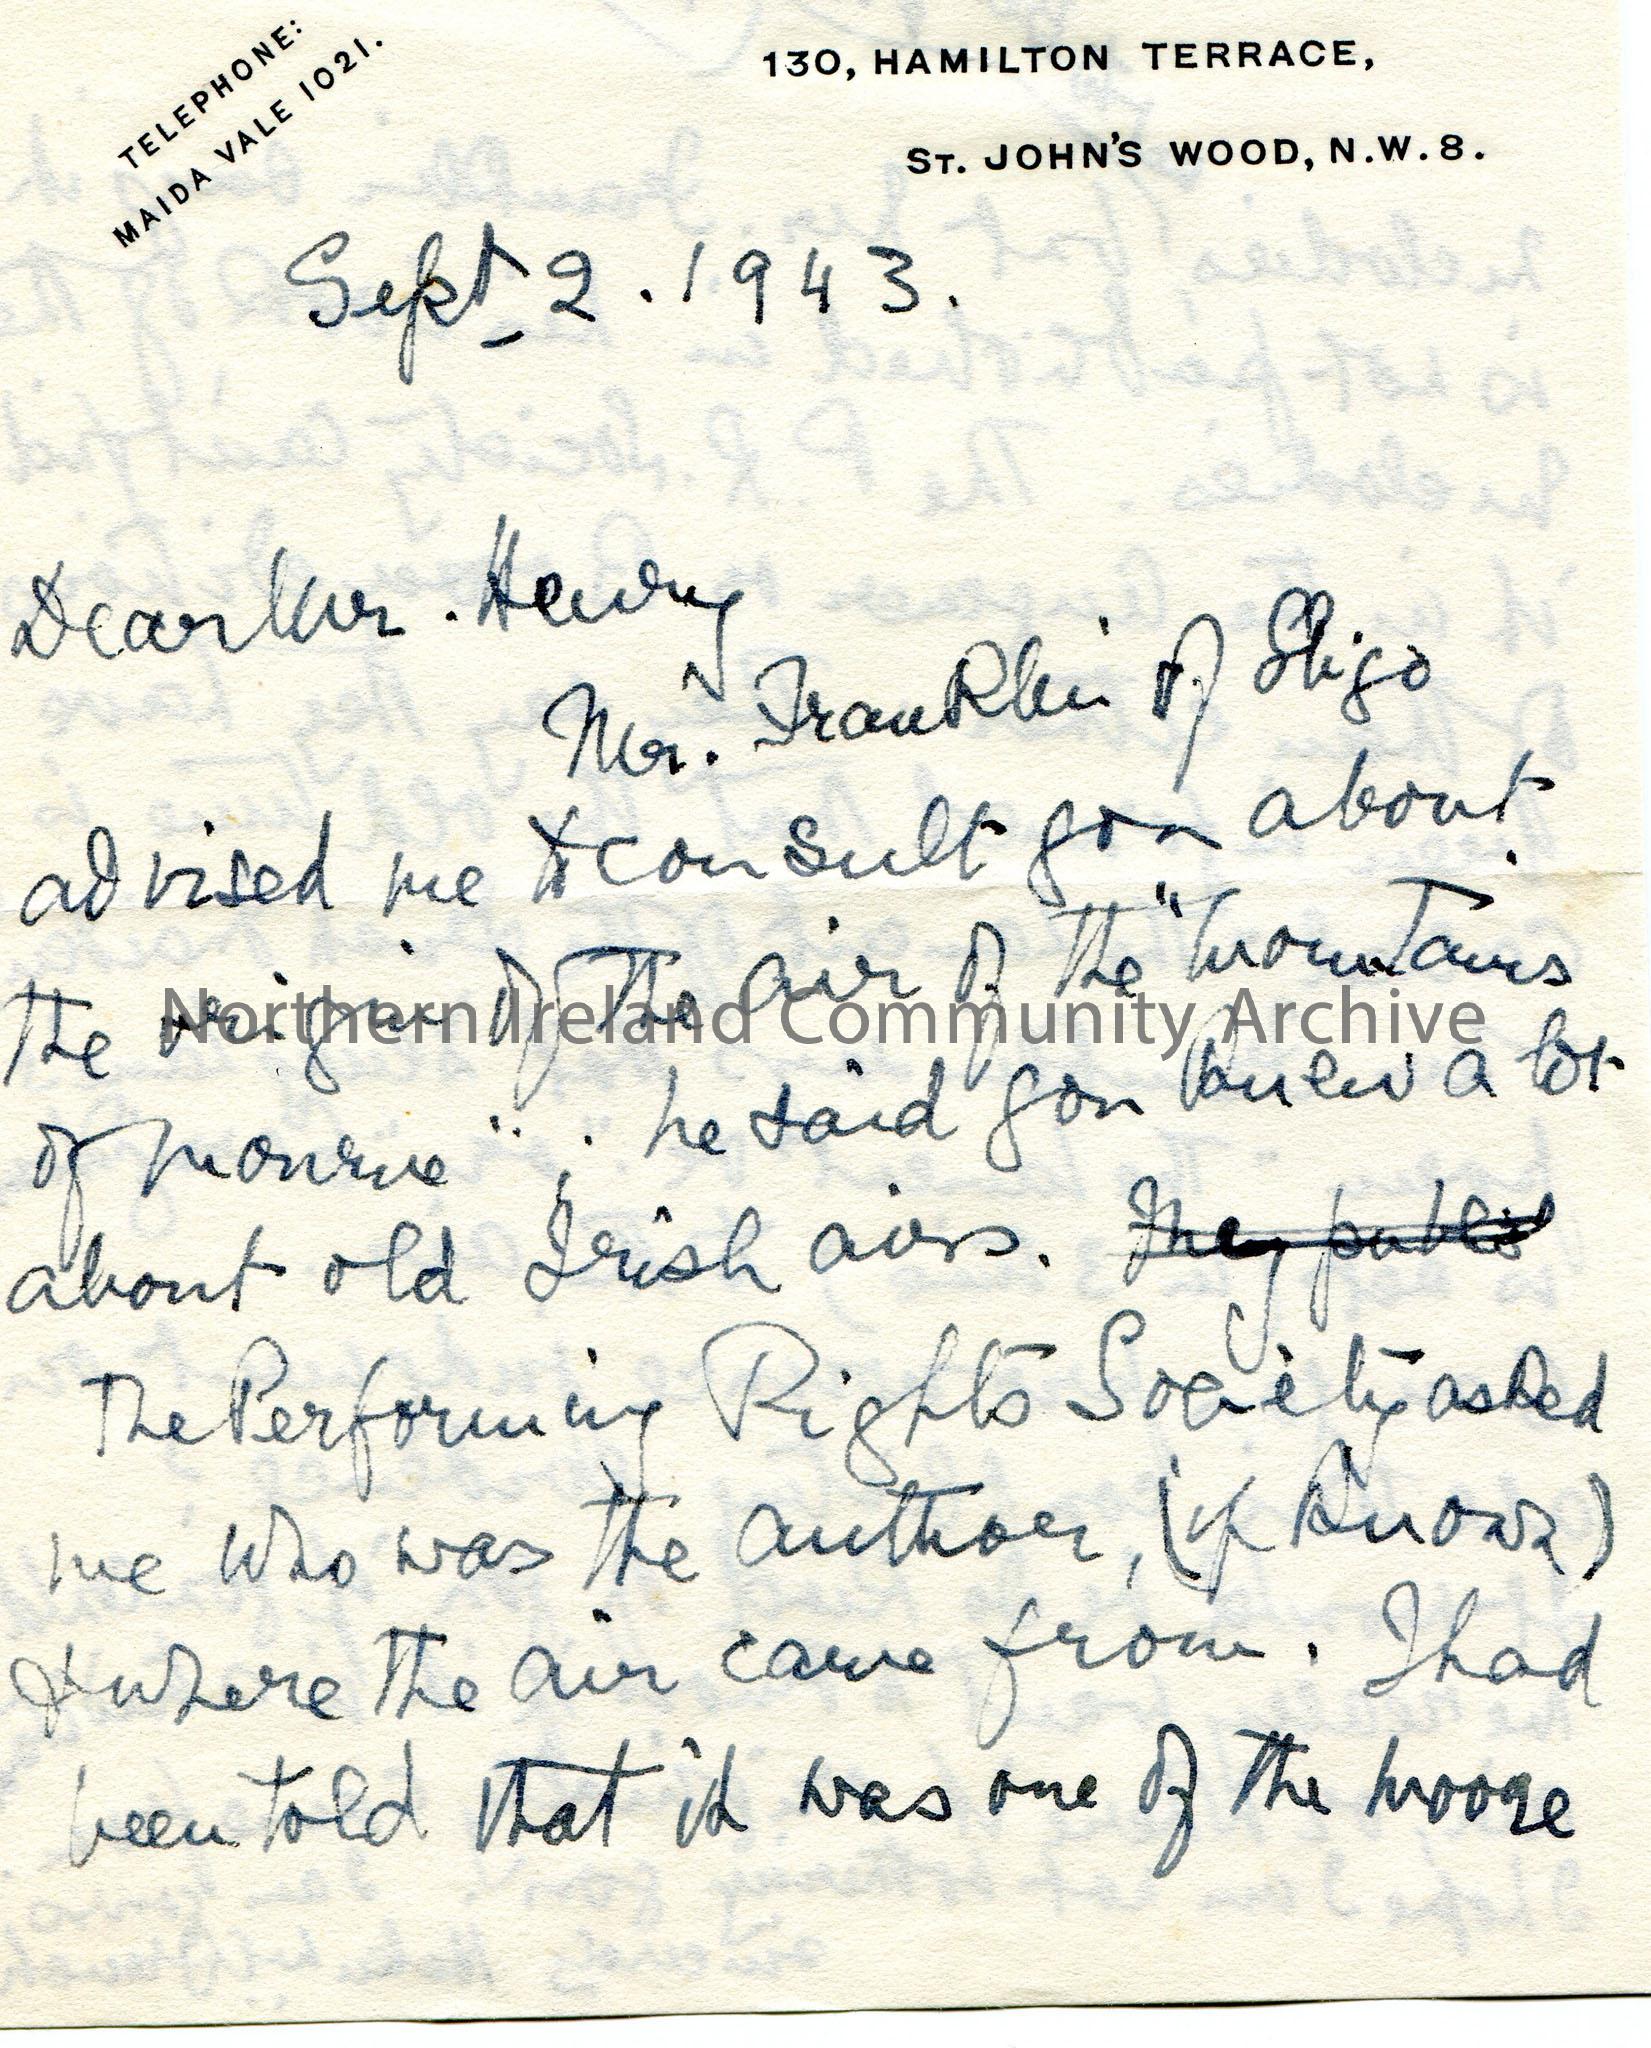 TELEPHONE:
MAIDA VALE 1021.
130, HAMILTON TERRACE,
ST. JOHN'S WOOD, N.W.8.
Sept 2. 1943.
Dear Mr. Henry
Mr. Franklin of Sligo
advised me to consult you about
the origin of the air of the "Mountains
of Mourne"; he said you knew a lot
about old Irish airs. They publis
The Performing Rights Society asked
me who was the author, (if known)
& where the air came from. I had
been told that it was one of the Moore
Northern Ireland Community Archive